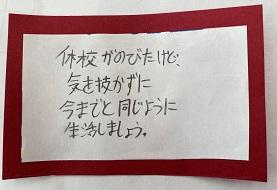 休校がのびたけど、
気を抜かずに
今までと同じように
生活しましょう。